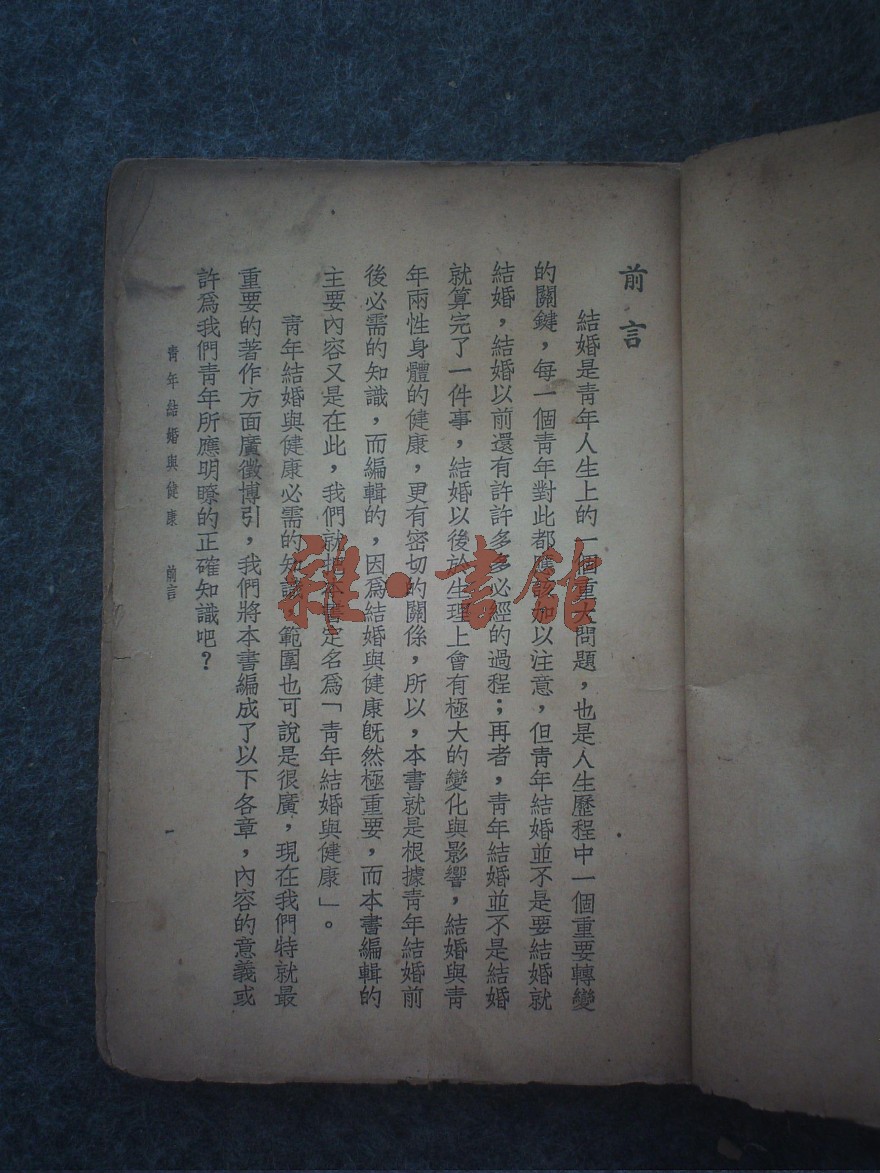 前言
結婚是靑年人生上的一個重大問題，也是人生歷程中一個重要轉變
的關鍵，每一個靑年對此都應該加以注意，但靑年結婚並不是要結婚就
結婚，結婚以前還有許許多多必經的過程；再者，靑年結婚並不是結婚
就算完了一件事，結婚以後於生理上會有極大的變化與影響，結婚與靑
年兩性身體的健康，更有密切的關係，所以，本書就是根據靑年結婚前
後必需的知識，而編輯的，因爲結婚與健康旣然極重要，而本書編輯的
主要內容又是在此，我們就把本書定名爲「靑年結婚與健康」。
靑年結婚與健康必需的知識，範圍也可說是很廣，現在我們特就最
重要的著作方面廣徵博引，我們將本書編成了以下各章，內容的意義或
許爲我們靑年所應明瞭的正確知識吧？
靑年結婚與健康　前言
一
雜·書館